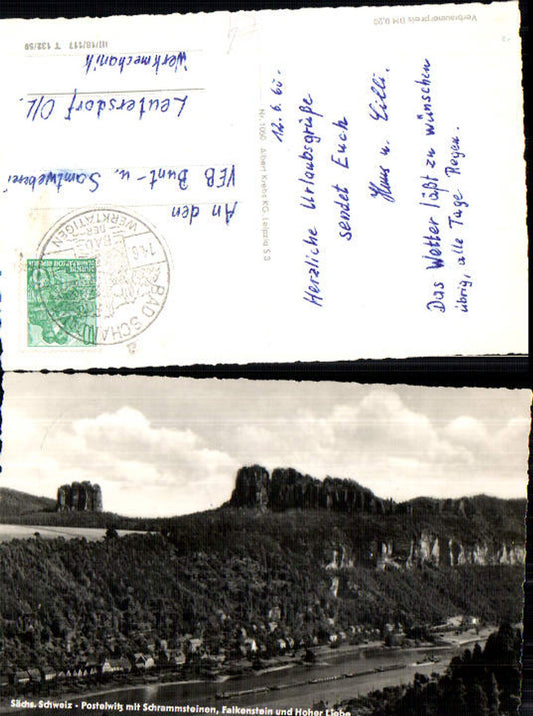 Verbraucherpreis DM 0,20
12.6.60.
Herzliche Urlaubsgrüße
sendet Euch
Hans u. Cilli.
Das Wetter läßt zu wünschen
übrig, alle Tage Regen.
Nr. 1060 Albert Krebs KG, Leipzig S 3
An den
VEB Bunt- u. Samtweberei
Leutersdorf O/L.
Werkmechanik
III/18/117 T 132/59
BAD SCHANDAU
BAD
DER
WERKTÄTIGEN
DEUTSCHE
DEMOKRATISCHE REPUBLIK
Sächs. Schweiz - Postelwitz mit Schrammsteinen, Falkenstein und Hoher Liebe